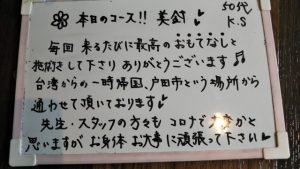 本日のコース!! 美針 50代
K.S
毎回 来るたびに最高のおもてなしと
施術をして下さり ありがとうございます♫
台湾からの一時帰国、戸田市という場所から
通わせて頂いております
先生・スタッフの方々も コロナで大変かと
思いますが お身体 お大事に頑張って下さい